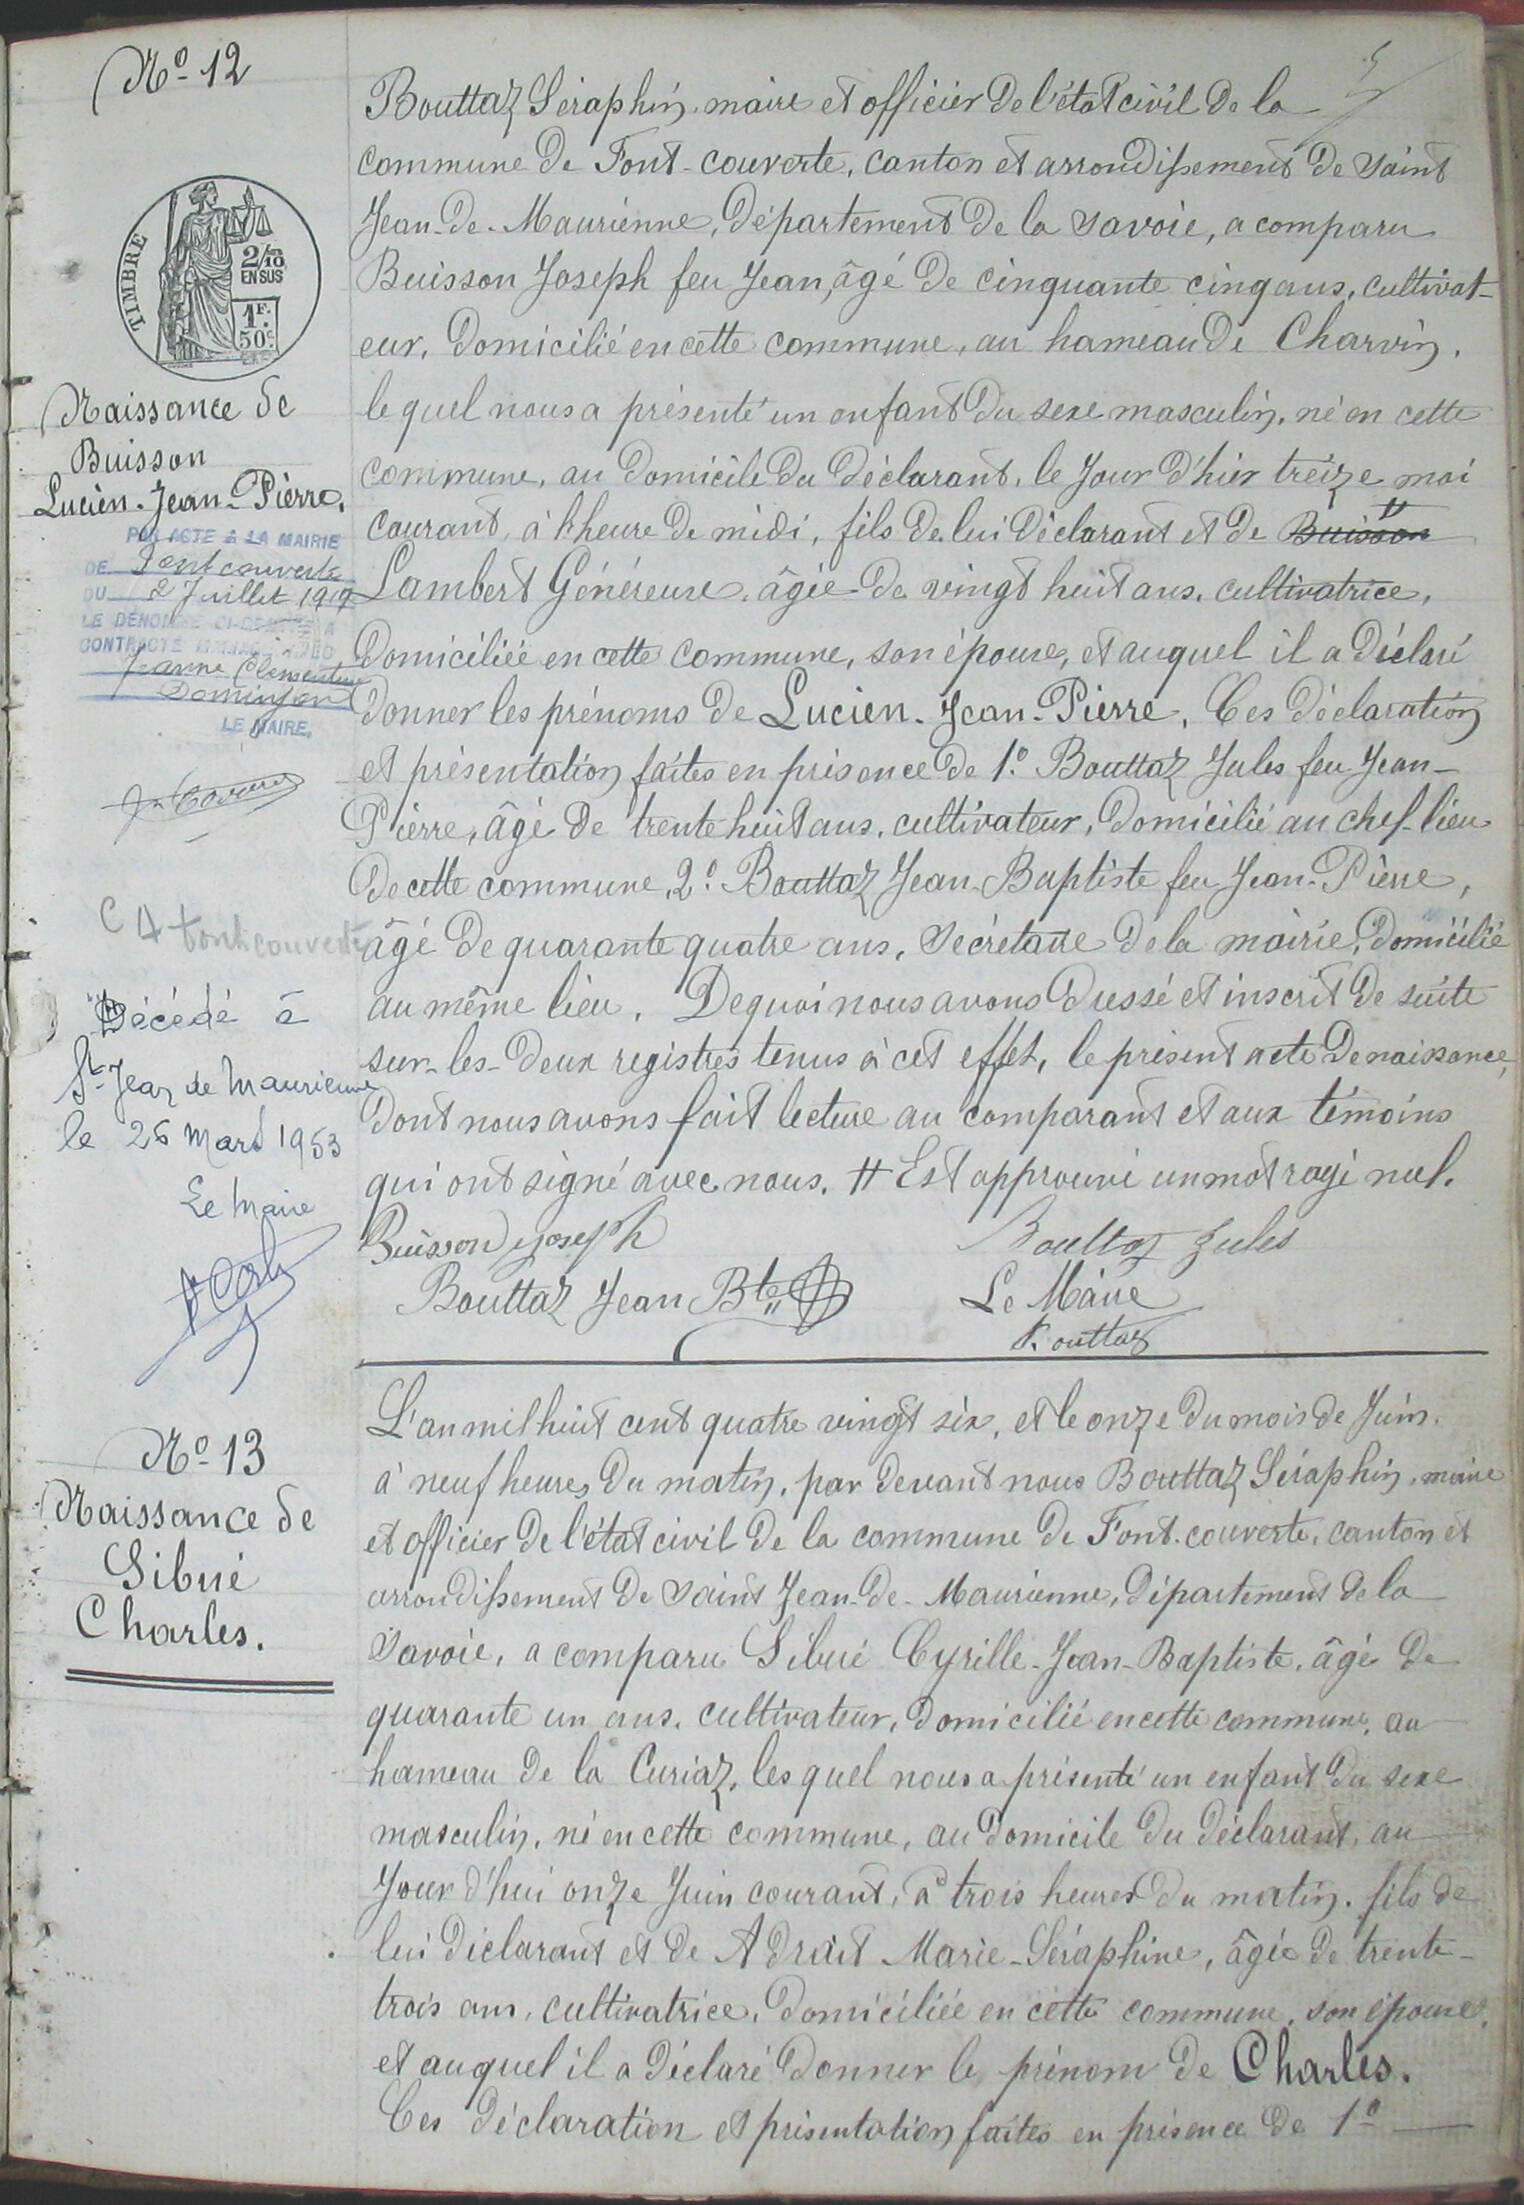 5
Nº 12
TIMBRE
2/10
EN SUS
1F.
50c.
Naissance de
Buisson
Lucien-Jean-Pierre.
PAR ACTE À LA MAIRIE
DE Font couverte
DU 2 Juillet 1919
LE DÉNOMMÉ CI-CONTRE A
CONTRACTÉ MARIAGE AVEC
Jeanne Clémentine
LE MAIRE,
C 4 fontcouverte
Décédé à
St Jean de Maurienne
le 26 Mars 1953
Le Maire
Bouttaz Séraphin, maire et officier de l'état civil de la
commune de Font-couverte, canton et arrondissement de Saint
Jean-de-Maurienne, département de la Savoie, a comparu
Buisson Joseph feu Jean, âgé de cinquante cinq ans, cultivat-
eur, domicilié en cette commune, au hameau de Charvin,
le quel nous a présenté un enfant du sexe masculin, né en cette
commune, au domicile du déclarant, le jour d'hier treize moi
courant, à l'heure de midi, fils de lui déclarant et de Buisson #
Lambert Généreuse, âgée de vingt huit ans, cultivatrice,
domiciliée en cette commune, son épouse, et auquel il a déclaré
donner les prénoms de Lucien-Jean-Pierre. Ces déclaration
et présentation faites en présence de 1º Bouttaz Jules feu Jean-
Pierre, âgé de trente huit ans, cultivateur, domicilié au chef-lieu
de cette commune, 2º Bouttaz Jean-Baptiste feu Jean-Pierre,
âgé de quarante quatre ans, Secrétaire de la mairie, domicilié
au même lieu. De quoi nous avons dressé et inscrit de suite
sur-les-deux registres tenus à cet effet, le présent acte de naissance,
dont nous avons fait lecture au comparant et aux témoins
qui ont signé avec nous. # Est approuvé un mot rayé nul.
Buisson Joseph
Bouttaz Jules
Bouttaz Jean Bte
Le Maire
S. Bouttaz
Nº 13
Naissance de
Sibué
Charles.
L'an mil huit cent quatre vingt six, et le onze du mois de Juin,
à neuf heures du matin, par devant nous Bouttaz Séraphin, maire
et officier de l'état civil de la commune de Font-couverte, canton et
arrondissement de Saint Jean-de-Maurienne, département de la
Savoie, a comparu Sibué Cyrille-Jean-Baptiste, âgé de
quarante un ans, cultivateur, domicilié en cette commune, au
hameau de la Curiaz, les quel nous a présenté un enfant du sexe
masculin, né en cette commune, au domicile du déclarant, au
jour d'hui onze Juin courant, à trois heures du matin, fils de
lui déclarant et de Adrait Marie-Séraphine, âgée de trente-
trois ans, cultivatrice, domiciliée en cette commune, son épouse,
et auquel il a déclaré donner le prénom de Charles.
Ces déclaration et présentation faites en présence de 1º